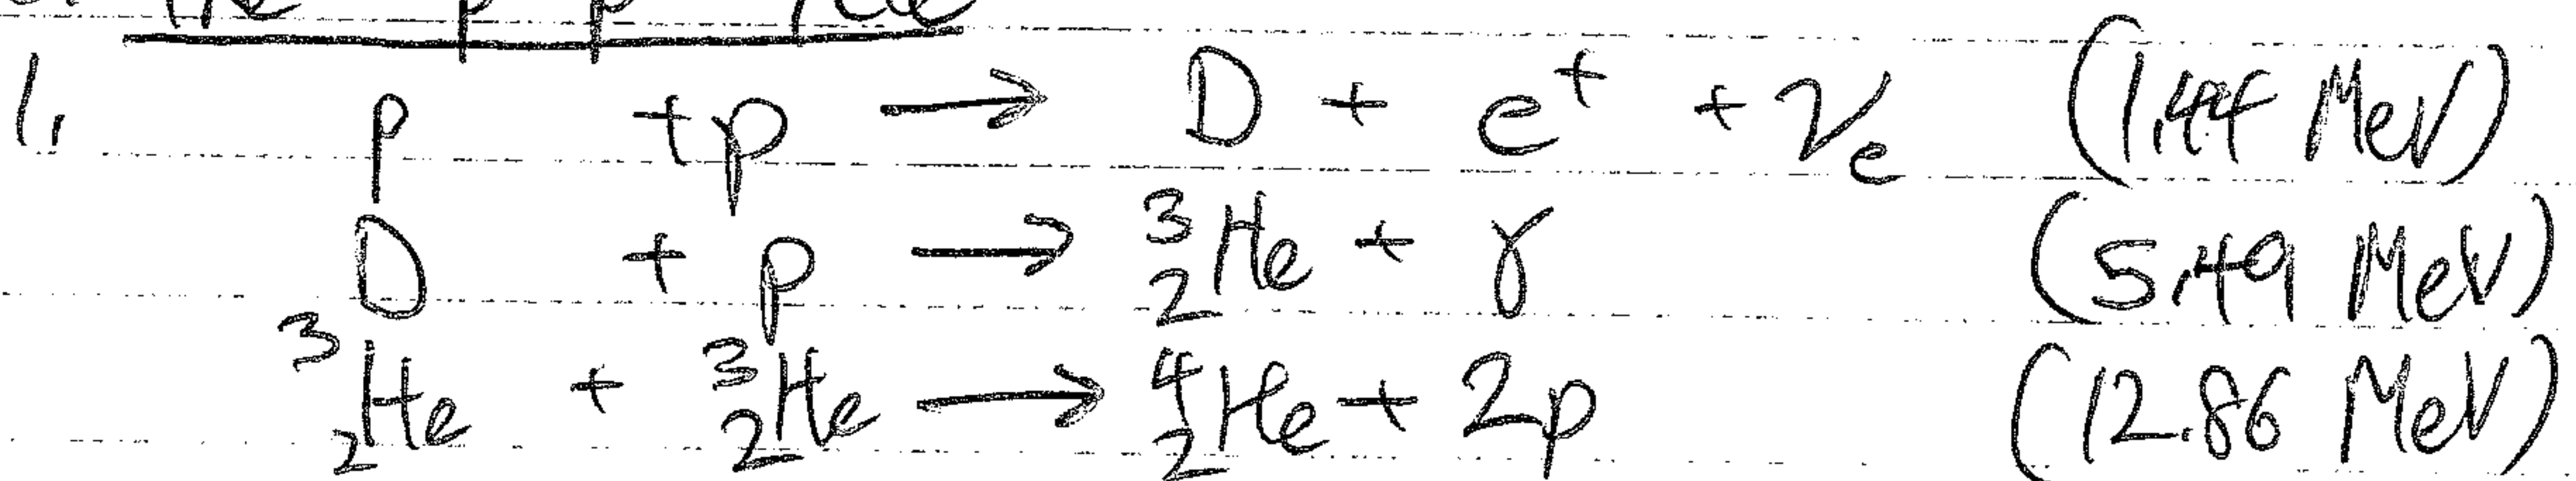 1. p + p → D + e⁺ + νₑ (1.44 MeV)
D + p → ³₂He + γ (5.49 MeV)
³₂He + ³₂He → ⁴₂He + 2p (12.86 MeV)